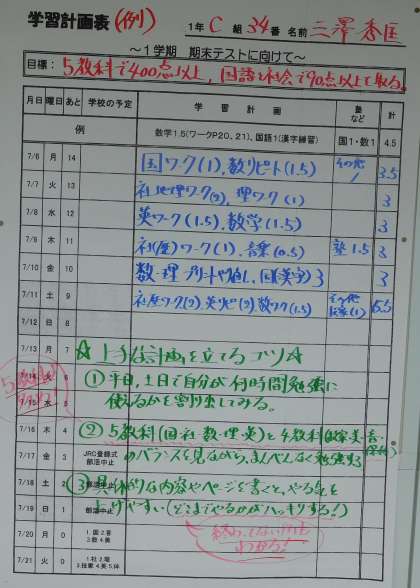 学習計画表 (例) 1年 C 組 34番 名前 三澤
～1学期 期末テストに向けて～
目標: 5教科で400点以上, 国語と社会で90点以上を取る。
月日 曜日 あと 学校の予定 学習計画 塾など 計
例 数学1.5(ワークP20、21)、国語1(漢字練習) 国1・数1 4.5
7/6 月 14 国ワーク(1), 数リピート(1.5) その他 1 3.5
7/7 火 13 社地理ワーク(2), 理ワーク(1) 3
7/8 水 12 英ワーク(1.5), 数学(1.5) 3
7/9 木 11 社(歴)ワーク(1), 音楽(0.5) 塾1.5 3
7/10 金 10 数・理プリントやり直し, 国(漢字) 3 3
7/11 土 9 社歴ワーク(2), 英リピ(2), 数ワーク(1.5) その他 (1) 6.5
7/12 日 8
7/13 月 7 ☆上手な計画を立てるコツ☆
7/14 火 6 ①平日, 土日で自分が何時間勉強に
7/15 水 5 使えるかを割り出してみる。
5教科
7/16 木 4 ②5教科(国社数・理・英)と4教科(技家・美・音・保体)
7/17 金 3 JRC登録式 部活中止 のバランスを見ながら, まんべんなく勉強する
7/18 土 2 部活中止 ③具体的な内容やページを書くと, やる気を
7/19 日 1 部活中止 上げやすい(どこまでやるかがハッキリする!)
7/20 月 0 1国2音 3数4美
終わってない所も
わかる!
7/21 火 0 1社2理 3技家4英5体